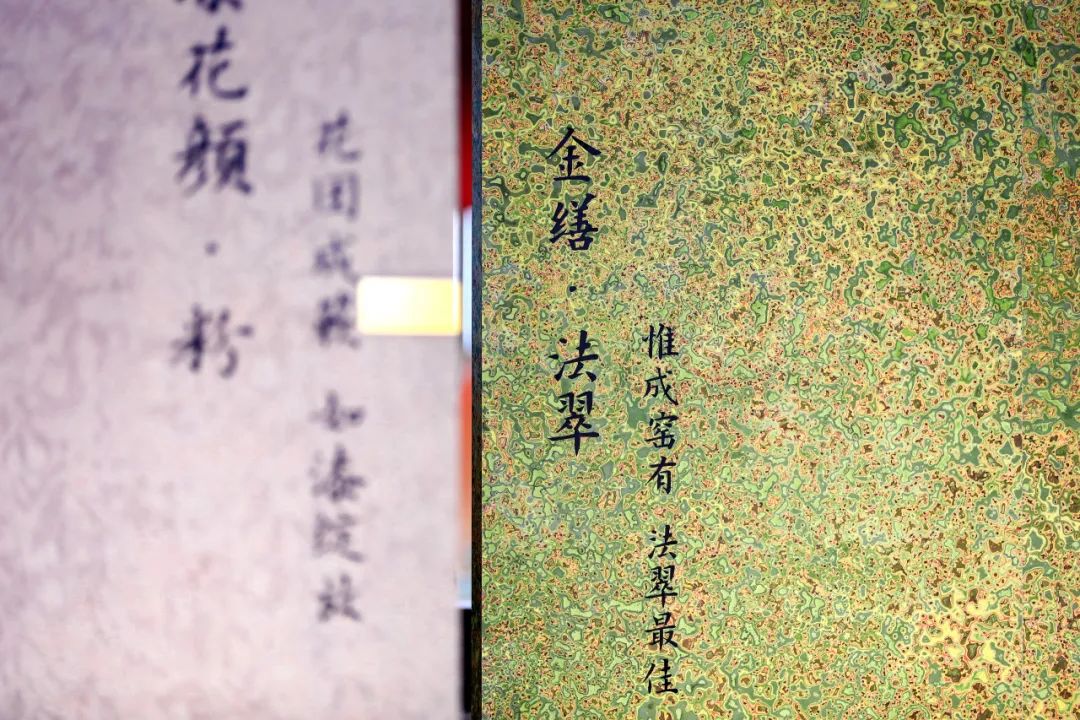 花颜·粉
花团成簇 如漆绽放
金缮·法翠
惟成窑有 法翠最佳